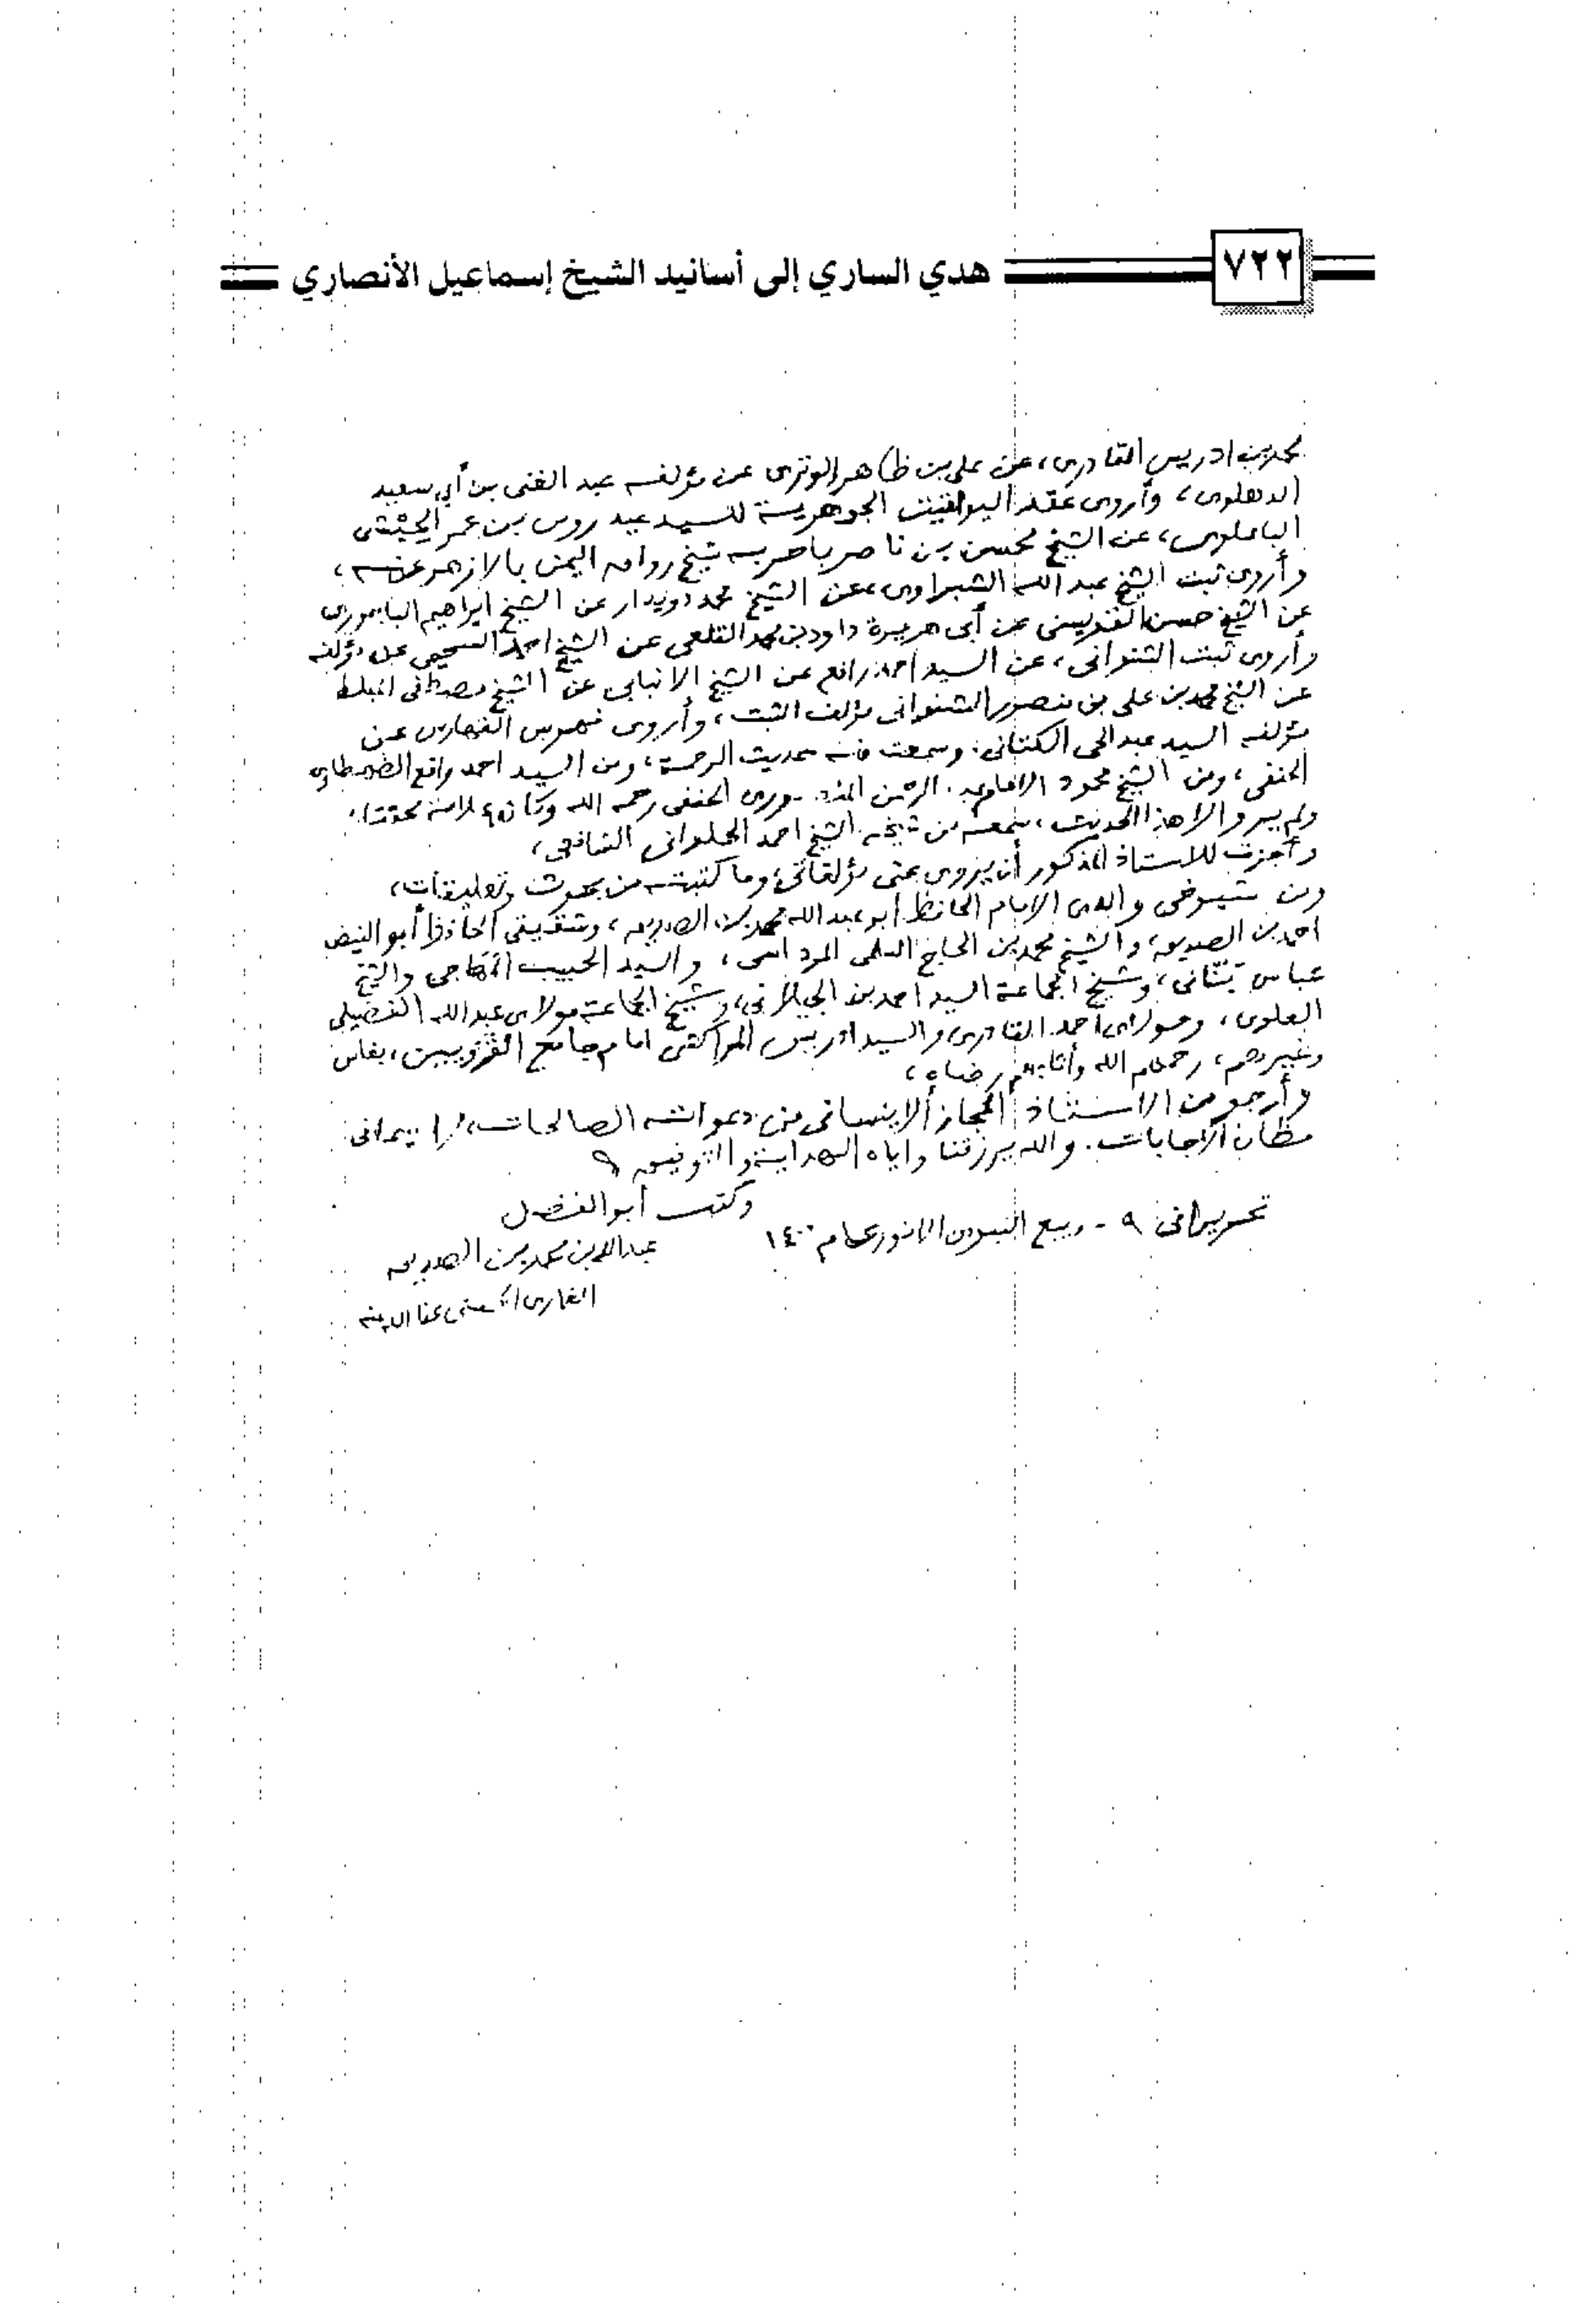 ٧٢٢
هدي الساري إلى أسانيد الشيخ إسماعيل الأنصاري
محمد بن ادريس القادرى، عن على بن ظاهر الوترى عن مؤلفه عبد الغنى بن أبي سعيد
الدهلوى، وأروى عقد اليواقيت الجوهرية للسيد عيدروس بن عمر الحبشى
الباعلوى، عن الشيخ محسن بن ناصر باحربه شيخ رواق اليمن بالازهر عنه،
وأروى ثبت الشيخ عبد الله الشبراوى، عن الشيخ محمد دويدار عن الشيخ ابراهيم الباجورى
عن الشيخ حسن القويسنى عن أبى هريرة داود بن محمد القلعى عن الشيخ احمد السحيمى عن مؤلفه
وأروى ثبت الشنوانى، عن السيد احمد رافع عن الشيخ الانبابى عن الشيخ مصطفى المبلط
عن الشيخ محمد بن على بن منصور الشنوانى مؤلف الثبت، وأروى فهرس الفهارس عن
مؤلفه السيد عبد الحى الكتانى، وسمعت منه حديث الرحمة، ومن السيد احمد رافع الطهطاوى
الحنفى، ومن الشيخ محمود الامام عبد الرحمن المنصورى الحنفى رحمه الله وكان
ولم يرو الا هذا الحديث، سمعه من شيخه الشيخ احمد الحلوانى الشافعى،
وأجزت للاستاذ المذكور أن يروى عنى مؤلفاتى، وما كتبته من بحوث وتعليقات،
ومن شيوخى والدى الإمام الحافظ ابو عبد الله محمد بن الصديق، وشقيقى الحافظ أبو الفيض
احمد بن الصديق، والشيخ محمد بن الحاج السلمى المرداسى، والسيد الحبيب المهاجى والشيخ
عباس بنانى، وشيخ الجماعة السيد احمد بن الجيلانى، وشيخ الجماعة مولاى عبد الله الفضيلى
العلوى، ومولاى احمد القادرى، والسيد ادريس المراكشى امام جامع القرويين، بفاس
وغيرهم، رحمهم الله وأثابهم رضاه،
وأرجو من الاستاذ المجاز ألا ينسانى من دعواته الصالحات،
مظان الاجابات. والله يرزقنا واياه الهداية والتوفيق
تحريرا فى ٩ - ربيع النبوى الانور عام ١٤٠٠
وكتب أبو الفضل
عبد الله بن محمد بن الصديق
الغمارى الحسنى عفا الله عنه